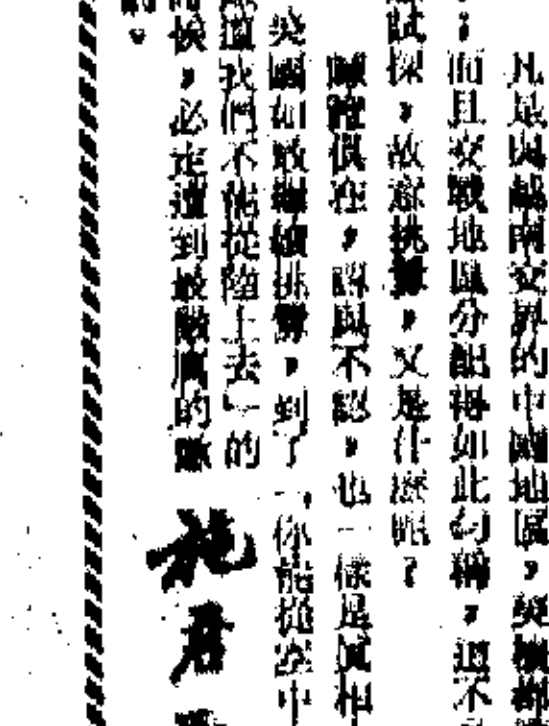 凡是與越南交界的中國地區，美機都
；而且交戰地區分配得如此勻稱，這不
試探，故意挑釁，又是什麼呢？
俱在，認與不認，也一樣是真相
美國如敢繼續挑釁，到了「你能從空中
道我們不能從陸上去」的
候，必定遭到最嚴厲的懲
。
施君